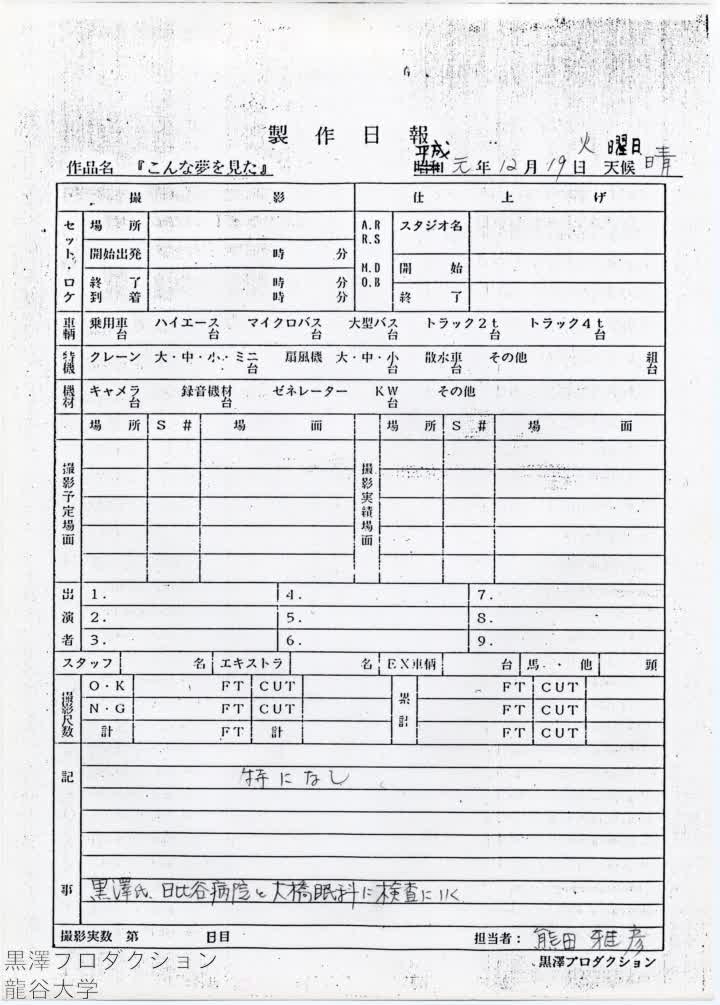 製作日報
作品名 『こんな夢を見た』 昭和 平成 元年12月19日 火曜日 天候 晴
撮影 仕上げ
セット・ロケ 場所 A.R R.S M.D O.B スタジオ名
開始出発 時 分 開始
終了 時 分
到着 時 分 終了
車輌 乗用車 台 ハイエース 台 マイクロバス 台 大型バス 台 トラック2t 台 トラック4t 台
特機 クレーン 大・中・小・ミニ 台 扇風機 大・中・小 台 散水車 台 その他 組 台
機材 キャメラ 台 録音機材 台 ゼネレーター KW 台 その他
場所 S# 場面 場所 S# 場面
撮影予定場面 撮影実績場面
出演者 1. 4. 7.
2. 5. 8.
3. 6. 9.
スタッフ 名 エキストラ 名 EX車輌 台 馬・他 頭
撮影尺数 O・K FT CUT 累計 FT CUT
N・G FT CUT FT CUT
計 FT 計 FT CUT
記事 特になし
黒澤氏、日比谷病院と大橋眼科に検査にいく
撮影実数 第 日目 担当者: 熊田雅彦
黒澤プロダクション
黒澤プロダクション
龍谷大学